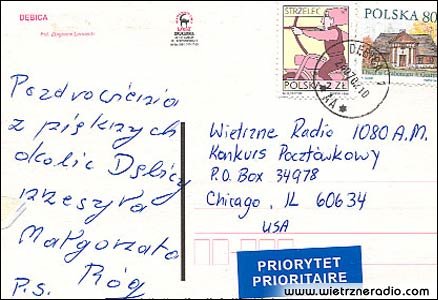 DEBICA
Fot. Zbigniew Lewiński
STRZELEC
POLSKA 2 ZŁ
POLSKA 80
DĘBICA 1
AA
Pozdrowienia
z pięknych
okolic Dębicy
przesyła
Małgorzata
Róg
P.S.
Wietrzne Radio 1080 A.M.
Konkurs Pocztówkowy
P.O. Box 34978
Chicago, IL 60634
USA
PRIORYTET
PRIORITAIRE
www.wietrzneradio.com